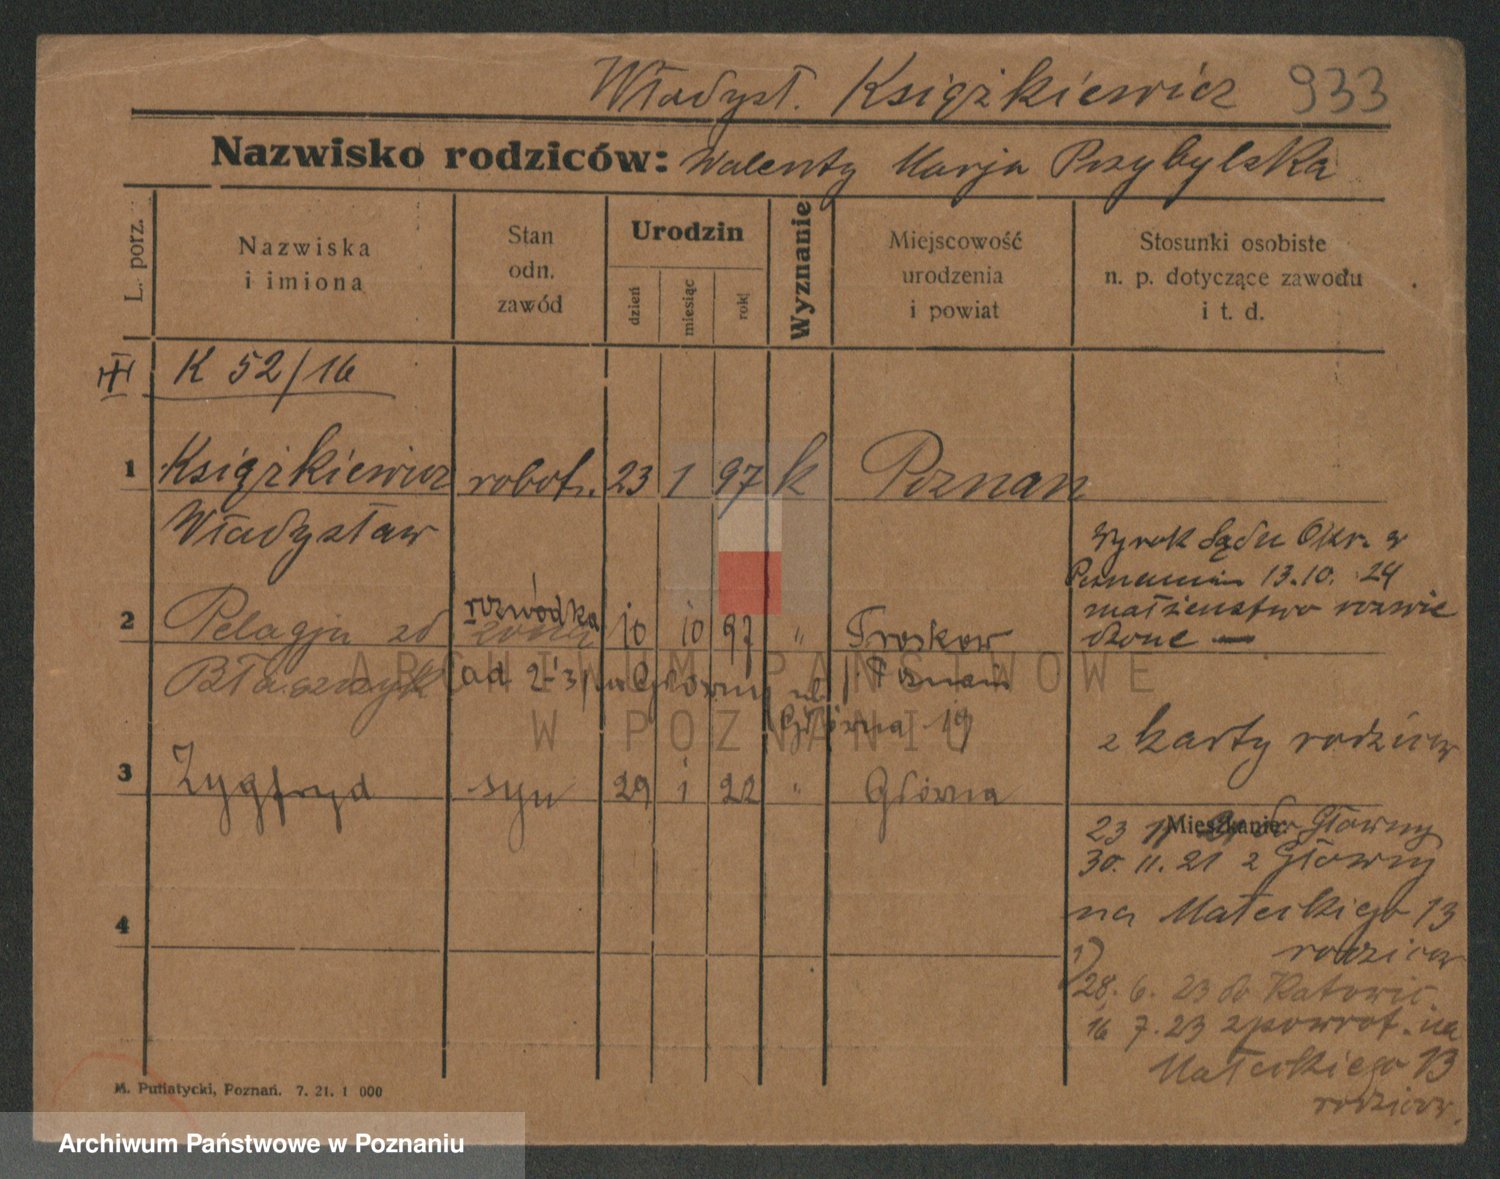 Władysł. Książkiewicz 933
Nazwisko rodziców: Walenty Marja Przybylska
L. porz.
Nazwiska
i imiona
Stan
odn.
zawód
Urodzin
dzień
miesiąc
rok
Wyznanie
Miejscowość
urodzenia
i powiat
Stosunki osobiste
n. p. dotyczące zawodu
i t. d.
K 52/16
1 Książkiewicz robotn. 23 1 97 k Poznan
Władysław
Wyrok Sądu Okr. w
Poznaniu 13.10. 24
małżeństwo rozwie
dzone
2 Pelagja zd żona rozwódka 10 10 97 " Troskow
Błaszczyk ad 2 i 3 Poznań
Główna 19
z karty rodziców
3 Zygfryd syn 29 1 22 " Główna
Mieszkanie:
23 Główny
30. 11. 21 z Główny
na Małeckiego 13
rodziców
4
1)
28. 6. 23 do Katowic.
16 7. 23 zpowrot. na
Małeckiego 13
rodziców.
M. Putiatycki, Poznań. 7. 21. 1 000
ARCHIWUM PAŃSTWOWE
W POZNANIU
Archiwum Państwowe w Poznaniu